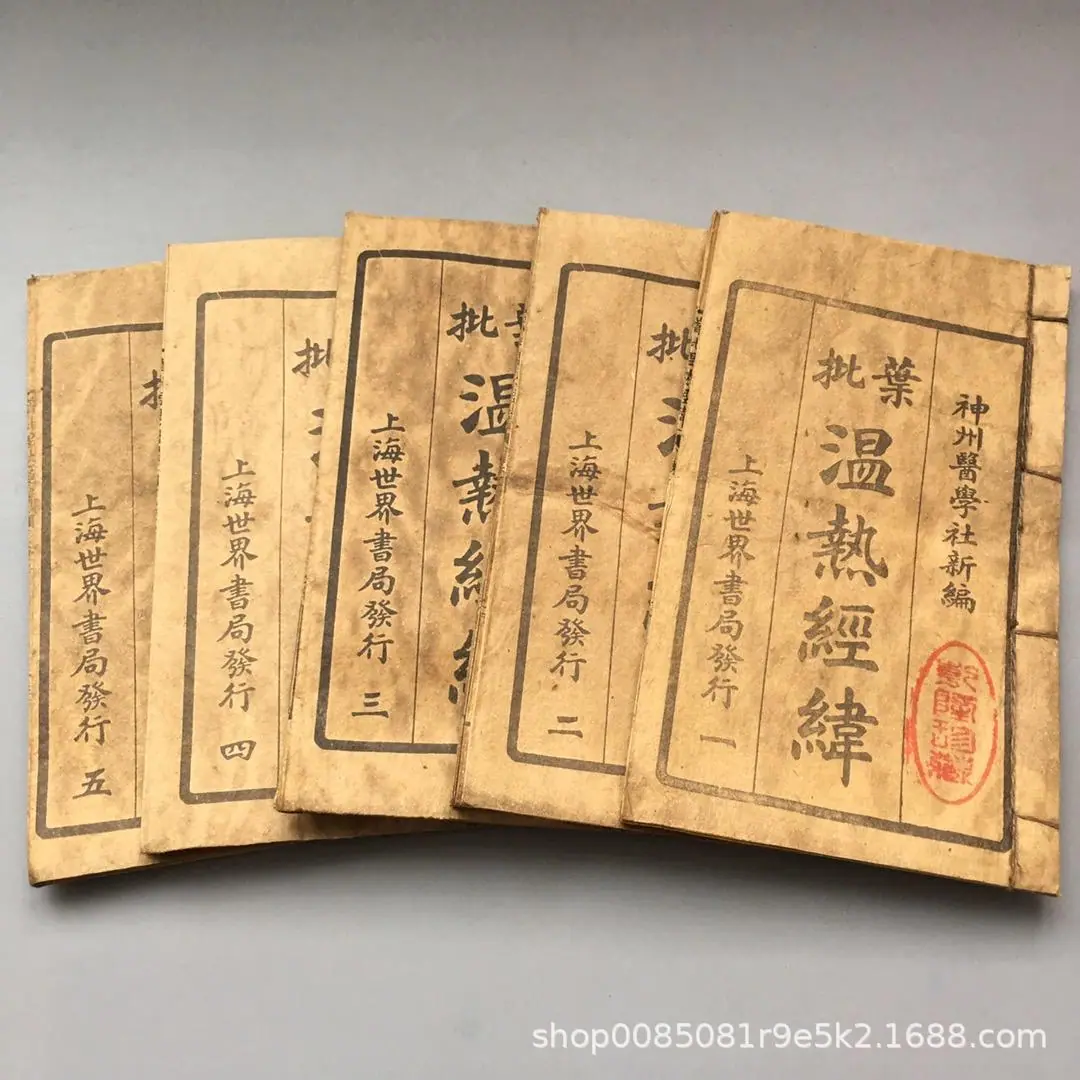 神州醫學社新編
葉批
温熱經緯
上海世界書局發行 一
批
上海世界書局發行 二
批葉
温熱經緯
上海世界書局發行 三
批
上海世界書局發行 四
上海世界書局發行 五
shop0085081r9e5k2.1688.com